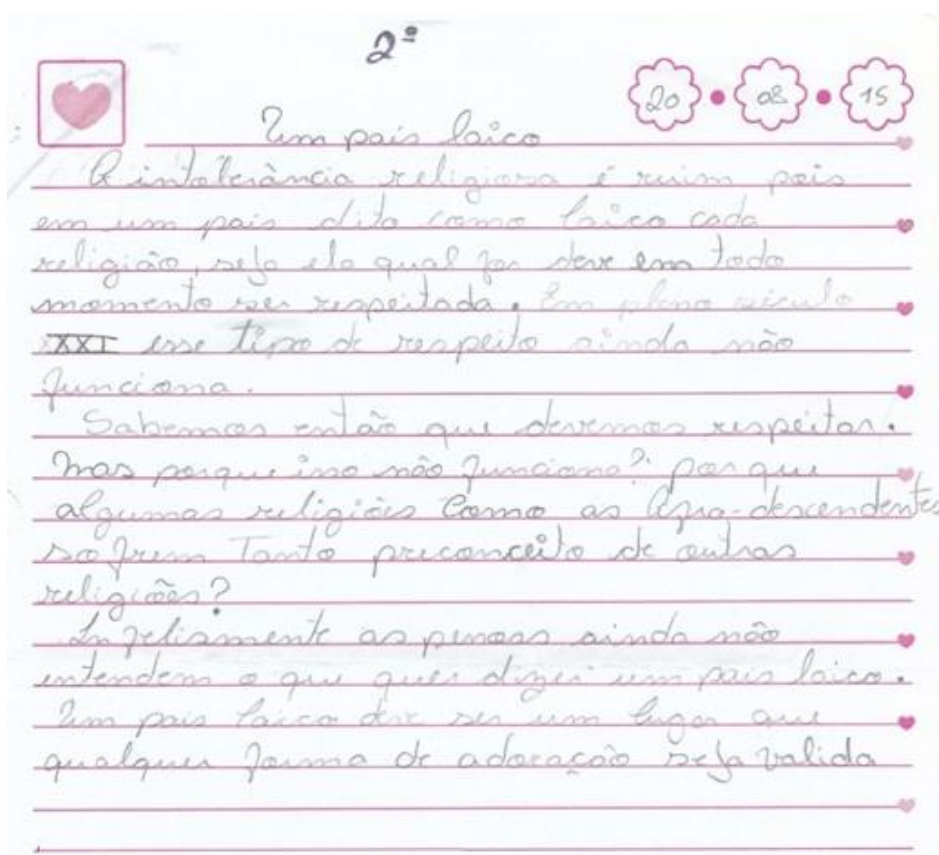 2º
20 08 15
Um pais laico
A intolerância religiosa é ruim pois
em um pais dito como laico cada
religião, seja ela qual for deve em todo
momento ser respeitada. Em pleno século
XXI esse tipo de respeito ainda não
funciona.
Sabemos então que devemos respeitar.
Mas porque isso não funciona? por que
algumas religiões Como as Afro-descendentes
sofrem Tanto preconceito de outras
religiões?
Infelismente as pessoas ainda não
entendem o que quer dizer um pais laico.
Um pais laico deve ser um lugar que
qualquer forma de adoração seja valida